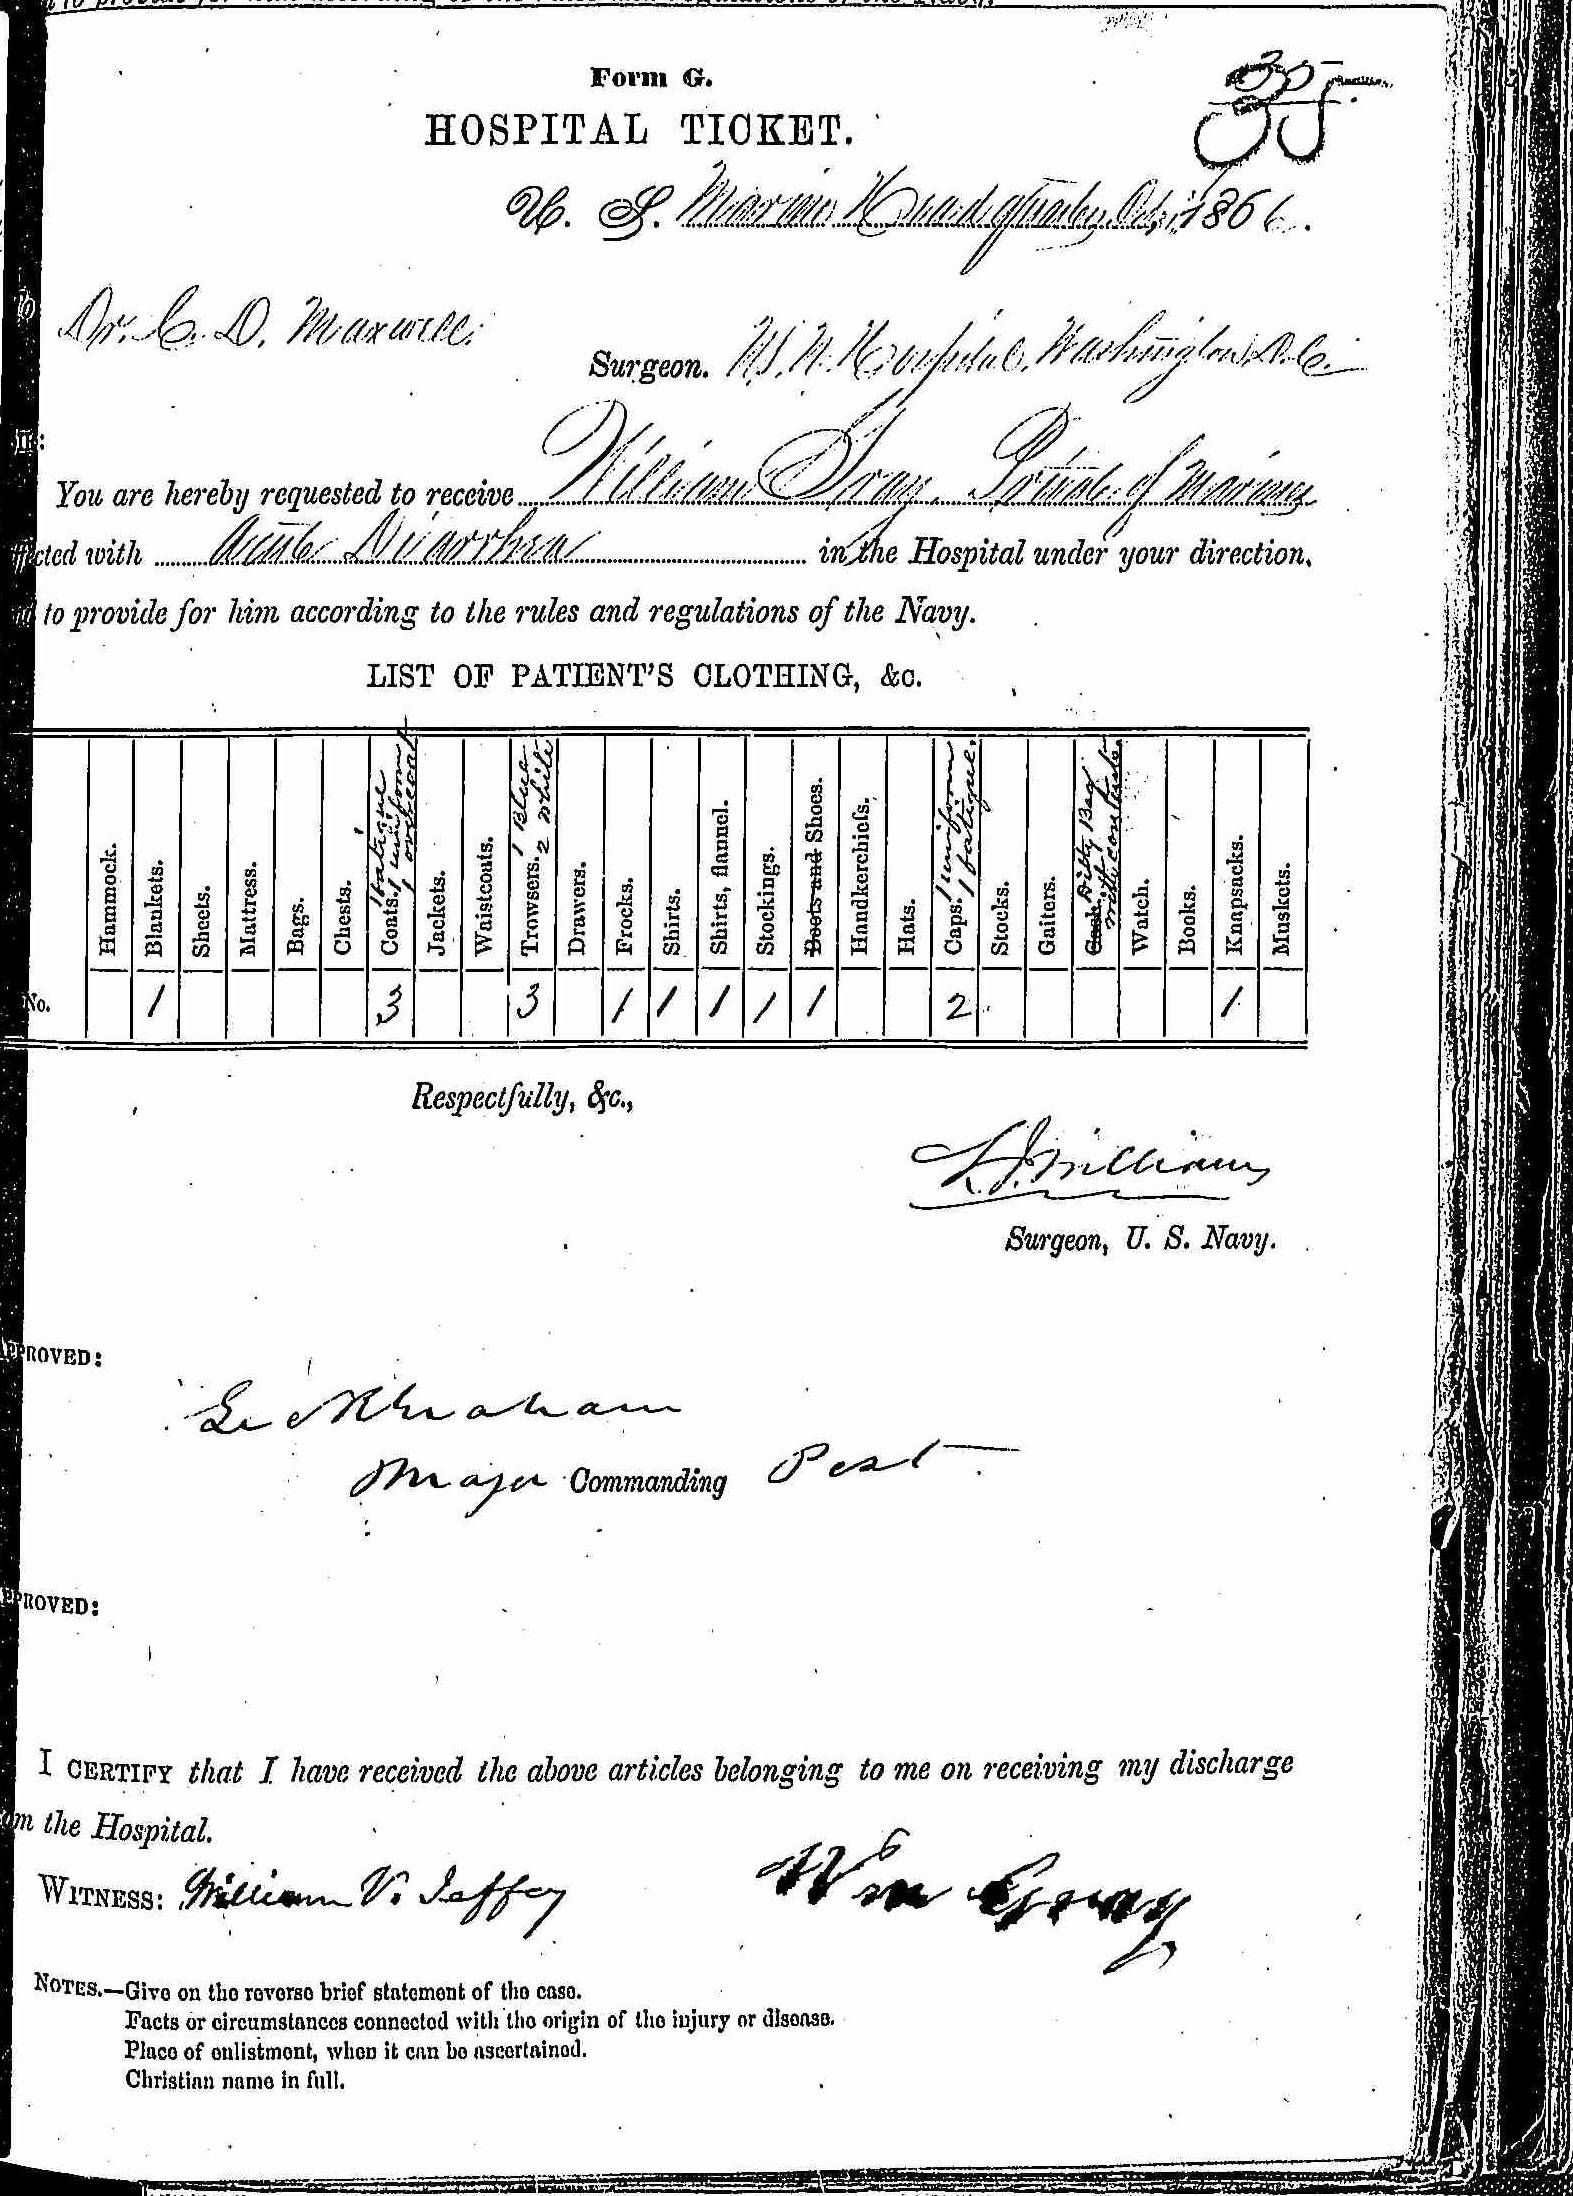 to provide for him according to the rules and regulations of the Navy.
Form G.
35
HOSPITAL TICKET.
U. S. Marine Headquarters, Oct. 1866.
To
Dr. C. D. Maxwell.
Surgeon. U. S. N. Hospital, Washington, D. C.
SIR:
You are hereby requested to receive William Gray, Private of Marines
ffected with Acute Diarrhea in the Hospital under your direction,
to provide for him according to the rules and regulations of the Navy.
LIST OF PATIENT'S CLOTHING, &c.
Hammock. Blankets. Sheets. Mattress. Bags. Chests. Coats. 1 fatigue 1 uniform 1 overcoat Jackets. Waistcoats. Trowsers. 1 Blue 2 white Drawers. Frocks. Shirts. Shirts, flannel. Stockings. Boots and Shoes. Handkerchiefs. Hats. Caps. 1 uniform 1 fatigue. Stocks. Gaiters. Ditty Bag with contents. Watch. Books. Knapsacks. Muskets.
No. 1 3 3 1 1 1 1 1 2 1
Respectfully, &c.,
Williams
Surgeon, U. S. Navy.
APPROVED:
Graham
Major Commanding Post
PPROVED:
I CERTIFY that I have received the above articles belonging to me on receiving my discharge
om the Hospital.
WITNESS: William V. Jeffey
Wm Gray
NOTES.—Give on the reverse brief statement of the case.
Facts or circumstances connected with the origin of the injury or disease.
Place of enlistment, when it can be ascertained.
Christian name in full.